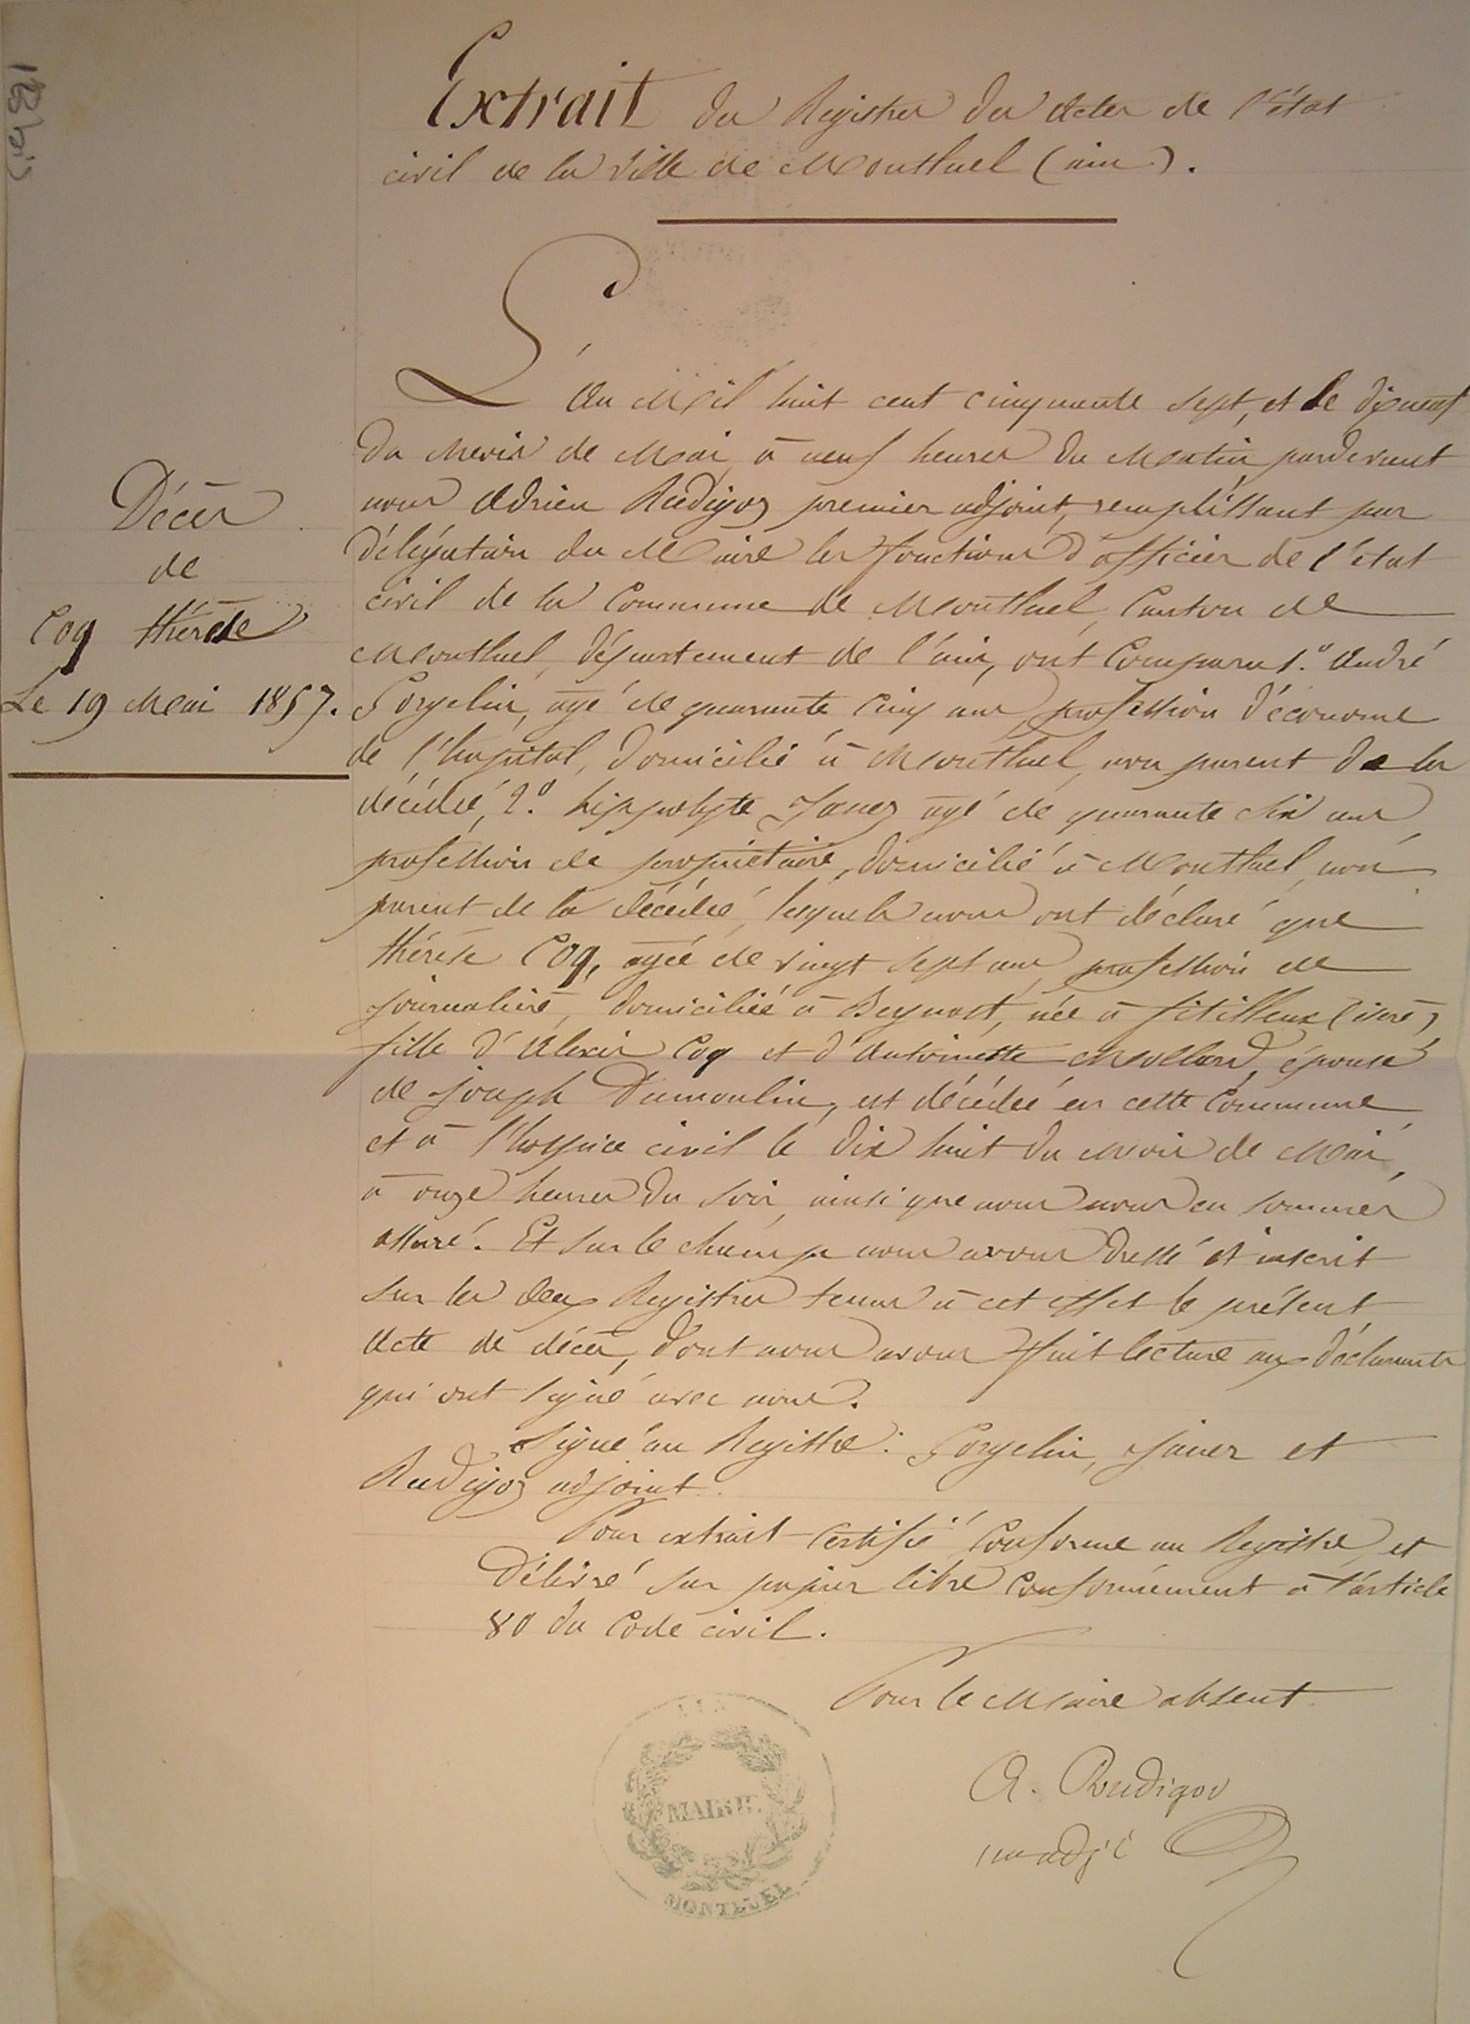 18 bis
Extrait du Registre des Actes de l'état
civil de la Ville de Montluel (ain).
L'an Mil huit cent cinquante sept, et le dixneuf
du mois de Mai, à neuf heures du Matin pardevant
nous Adrien Rudigoz premier adjoint, remplissant par
délégation du Maire les fonctions d'officier de l'état
civil de la Commune de Montluel, Canton de
Montluel, département de l'ain, ont Comparu 1.° André
Gorgelin, agé de quarante cinq ans, profession d'économe
de l'hopital, domicilié à Montluel, non parent de la
décédée, 2.° hippolyte Janez agé de quarante six ans
profession de propriétaire, domicilié à Montluel, non
parent de la décédée, lesquels nous ont déclaré que
thérèse Coq, agée de vingt sept ans, profession de
journalière, domiciliée à Beynost, née à fitilleux (isère)
fille d'Alexis Coq et d'Antoinette Mollard, épouse
de joseph Dumoulin, est décédée en cette Commune
et à l'hospice civil le dix huit du mois de Mai,
à onze heures du soir, ainsi que nous nous en sommes
assuré. Et sur le champ nous avons dressé et inscrit
sur les deux Registres tenus à cet effet le présent
Acte de décès, dont nous avons fait lecture aux déclarants
qui ont signé avec nous.
Signé au Registre: Gorgelin, Janez et
Rudigoz adjoint.
Pour extrait Certifié Conforme au Registre, et
Délivré sur papier libre Conformément à l'article
80 du Code civil.
Pour le Maire absent
A. Rudigoz
adjt
Décès
de
Coq thérèse
Le 19 Mai 1857.
AIN
MAIRIE
MONTLUEL